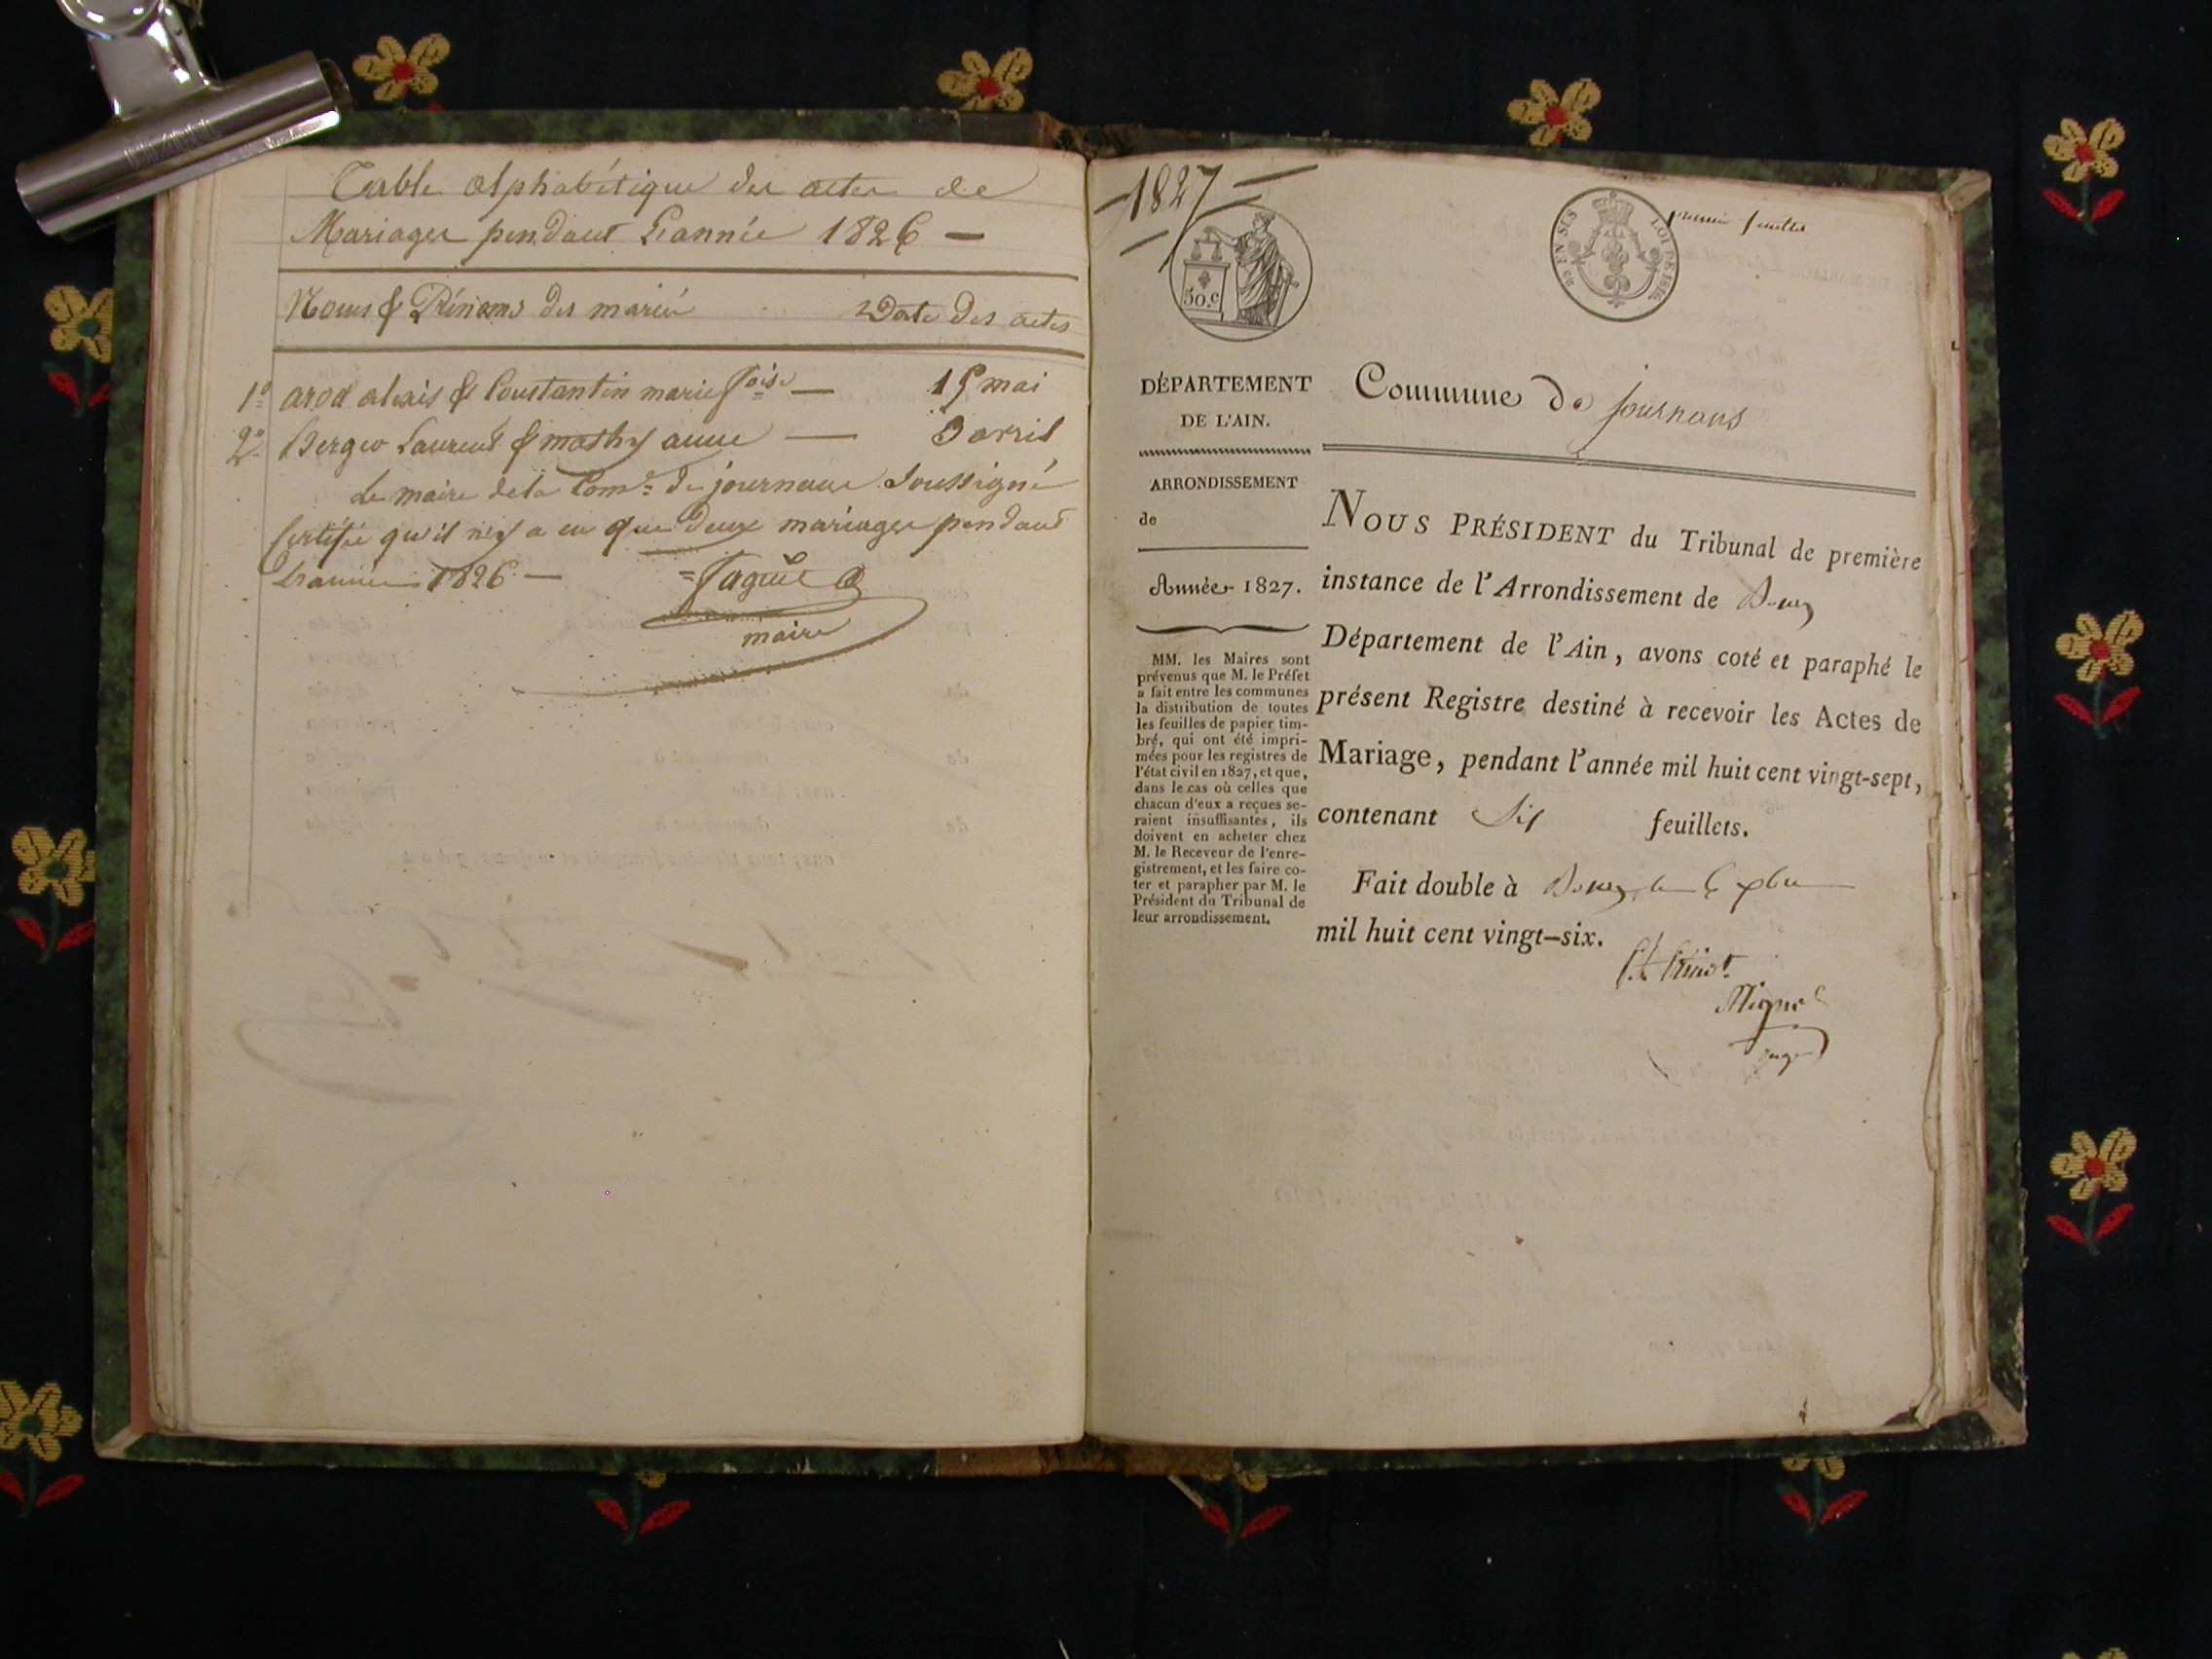 Table alphabétique des actes de
Mariages pendant L'année 1826 —
Noms & Prénoms des mariés Date des actes
1º arod alexis & Constantin marie foise — 15 mai
2º Berger Laurent & mathy anne — 3 avril
Le maire de la Com.e de journans Soussigné
Certifie qu'il n'y a eu que deux mariages pendant
L'année 1826 —
maire
1827
premier feuillet
50.c
LOI DE 1816.
DÉPARTEMENT
DE L'AIN.
ARRONDISSEMENT
de
Année 1827.
MM. les Maires sont
prévenus que M. le Préfet
a fait entre les communes
la distribution de toutes
les feuilles de papier tim-
bré, qui ont été impri-
mées pour les registres de
l'état civil en 1827, et que,
dans le cas où celles que
chacun d'eux a reçues se-
raient insuffisantes, ils
doivent en acheter chez
M. le Receveur de l'enre-
gistrement, et les faire co-
ter et parapher par M. le
Président du Tribunal de
leur arrondissement.
Commune de journans
NOUS PRÉSIDENT du Tribunal de première
instance de l'Arrondissement de Bourg
Département de l'Ain, avons coté et paraphé le
présent Registre destiné à recevoir les Actes de
Mariage, pendant l'année mil huit cent vingt-sept,
contenant Six feuillets.
Fait double à Bourg, le
mil huit cent vingt-six.
juge